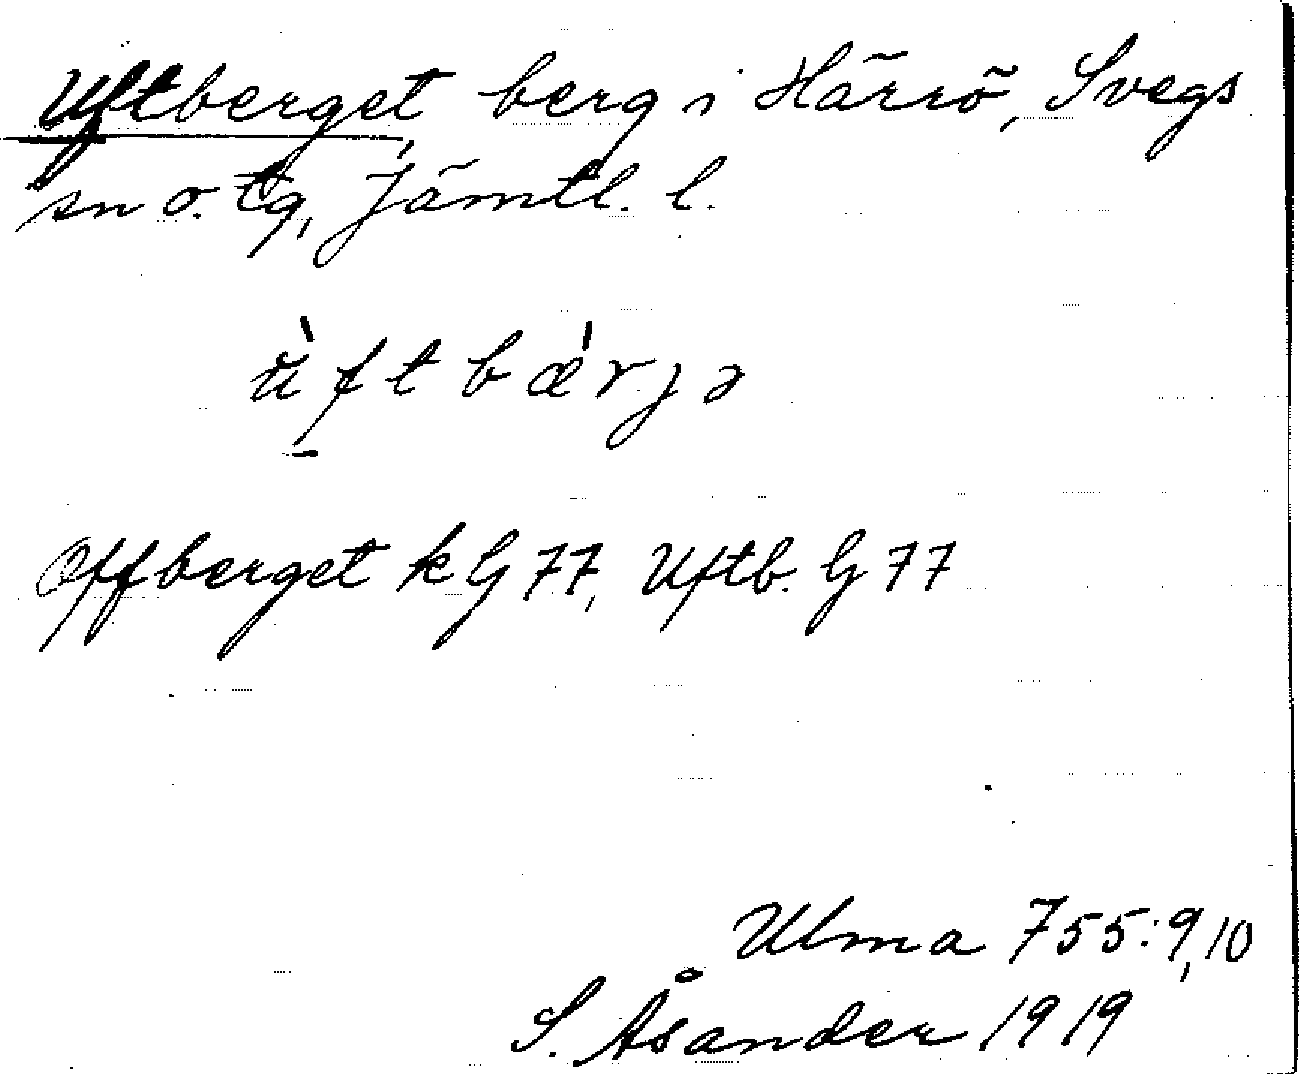 Uftberget, berg i Härrö, Svegs
sn o. tg, Jämtl. l.
ùftbǽrjə
Offberget k G 77, Uftb. G 77
Ulma 755:9,10
S. Åsander 1919